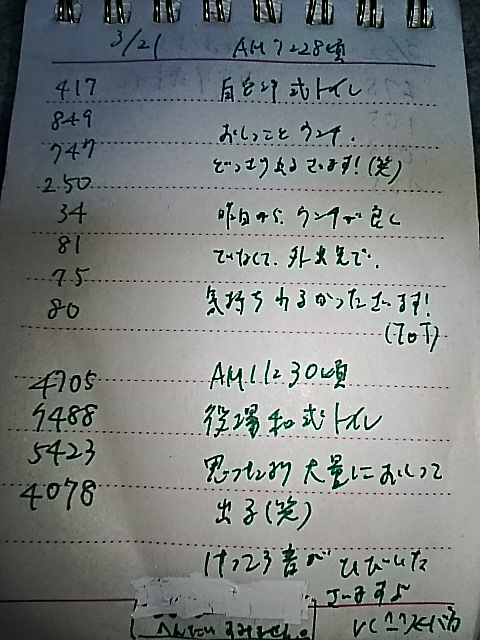 3/21 AM7:28頃
417 自宅洋式トイレ
849 おしっことウンチ、
747 どっさり出るざます!(笑)
250
34 昨日から、ウンチが良く
81 でなくて、外出先で、
75
80 気持ちわるかったざます!
(ToT)
4705 AM11:30頃
7488 役場和式トイレ
5423 思ったより大量におしっこ
4078 出る(笑)
音がひびいた
ざますよ
へんたいすみません。